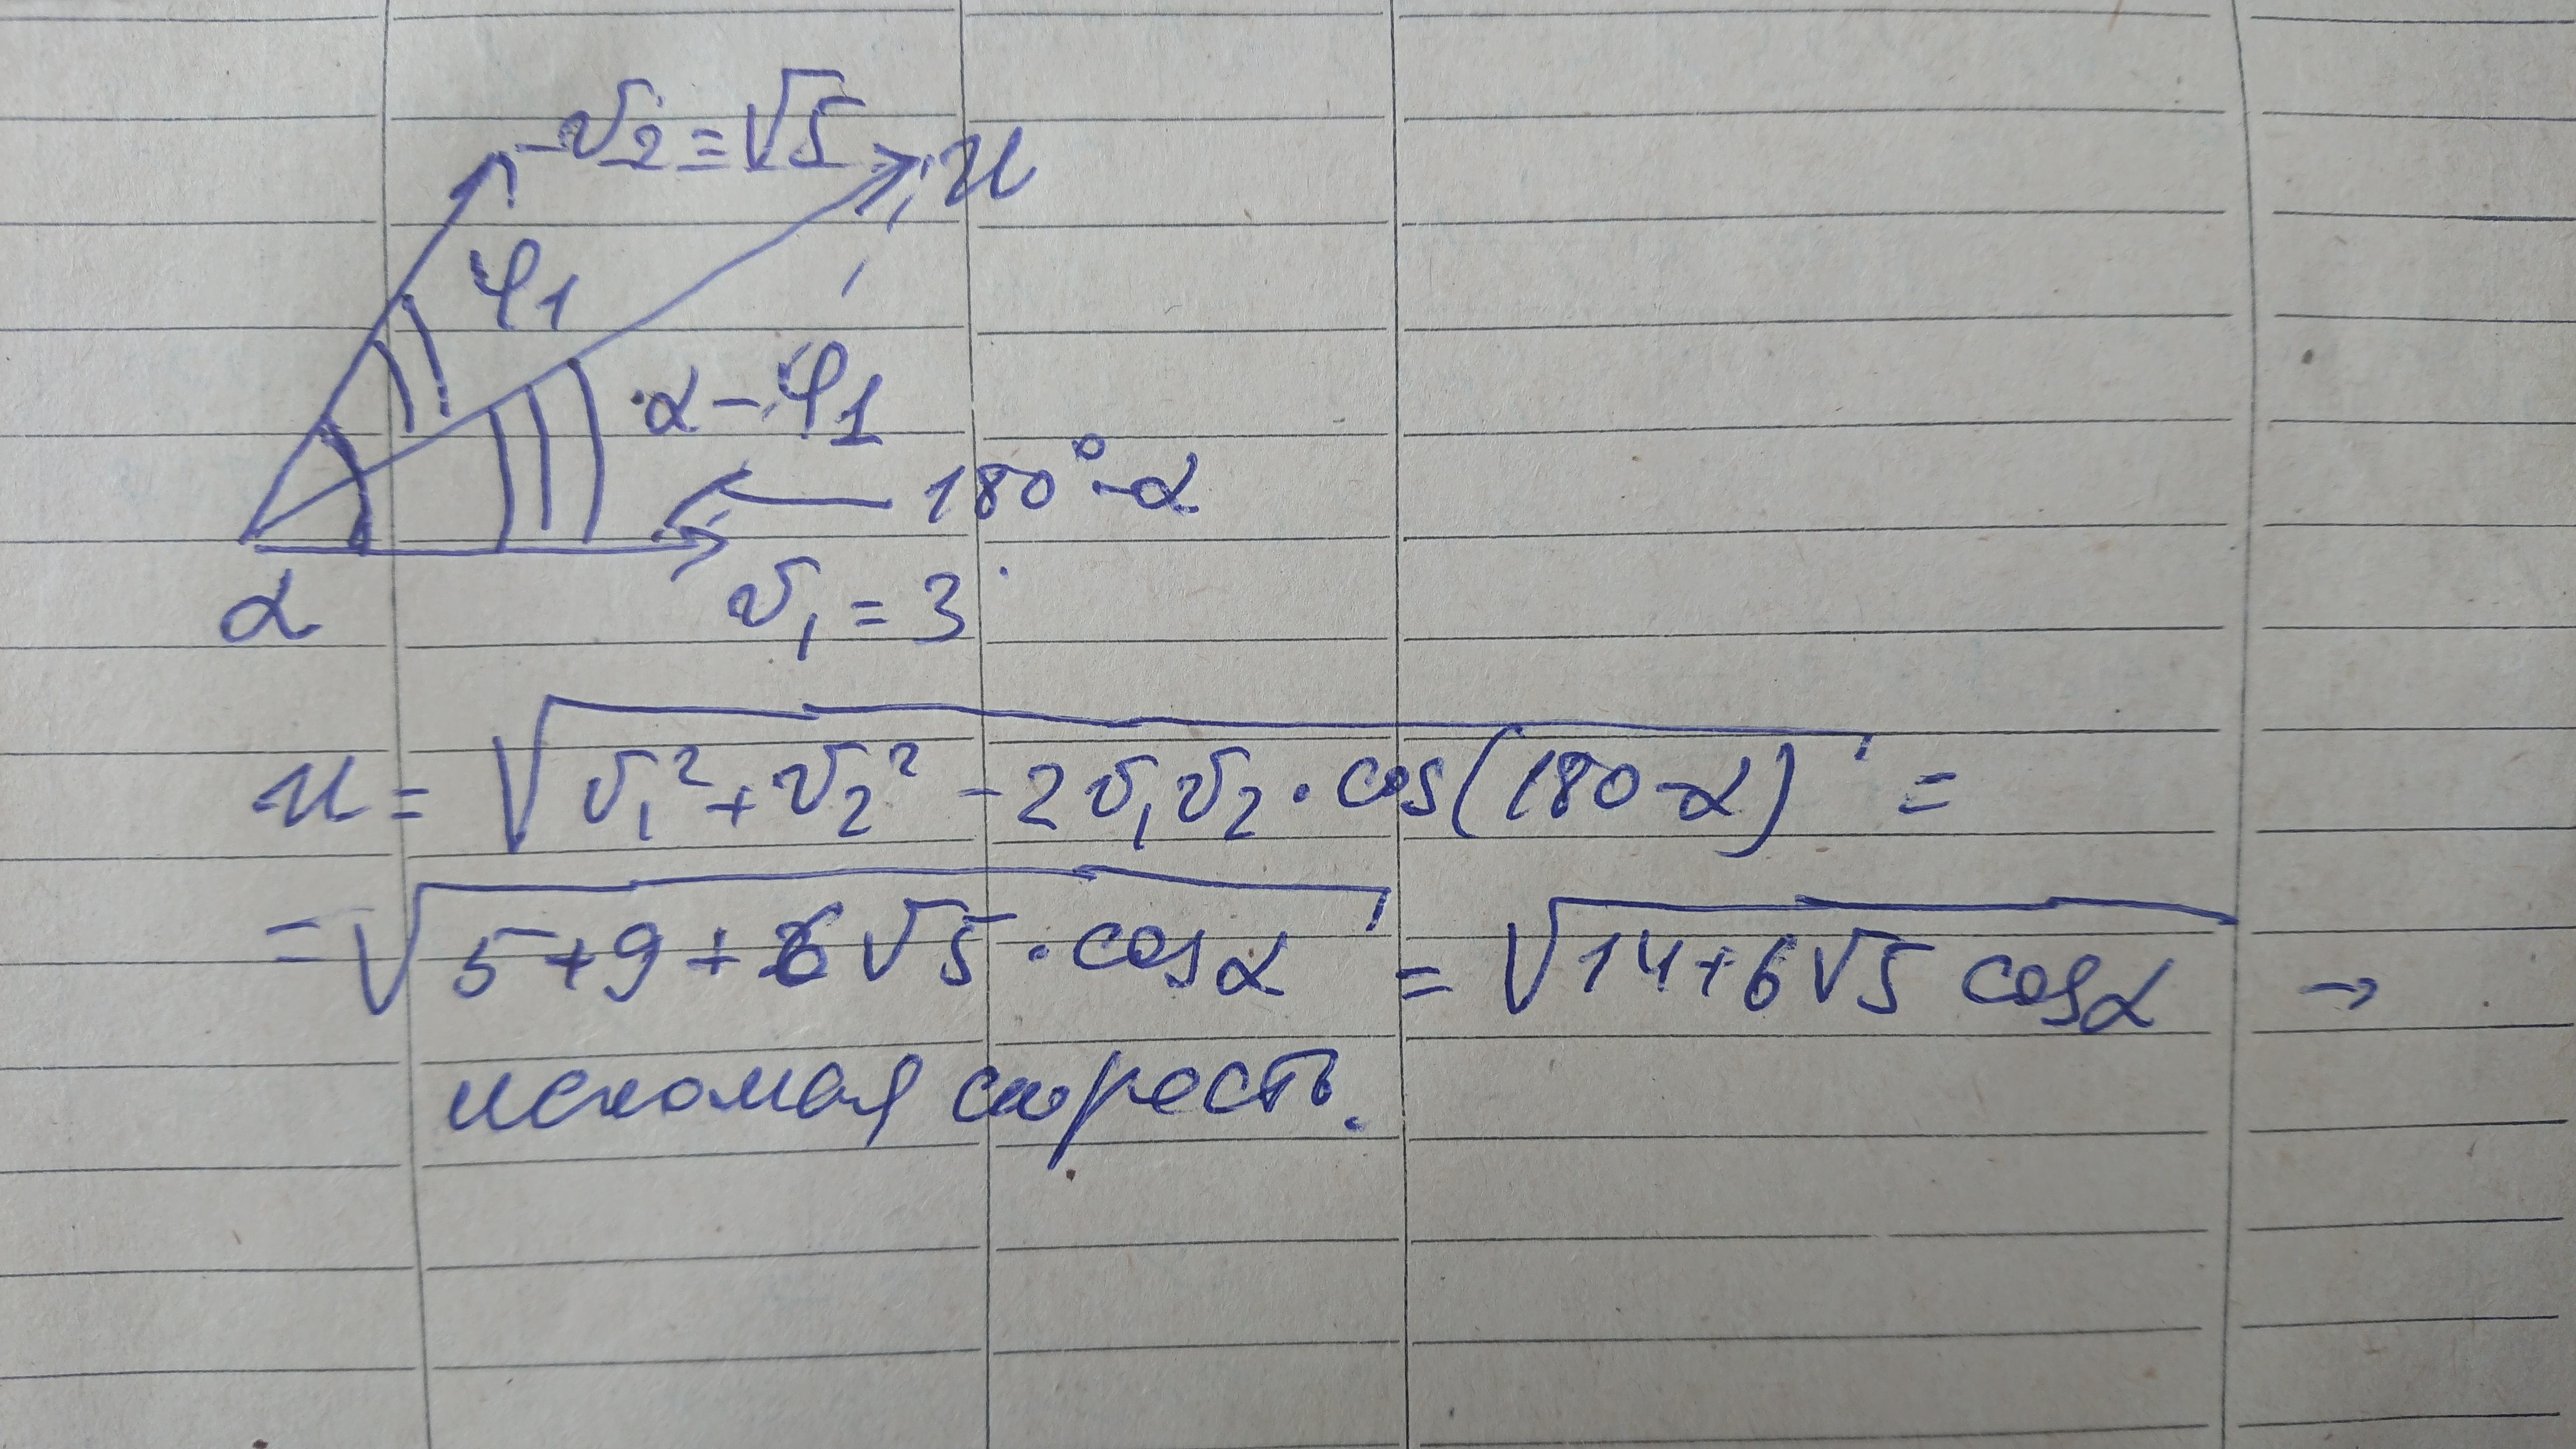 υ₂ = √5
u
φ1
α - φ1
180° - α
α
υ₁ = 3
u = √(υ₁² + υ₂² - 2υ₁υ₂ · cos(180-α)) =
= √(5+9+6√5 · cosα) = √(14+6√5 cosα) →
искомая скорость.